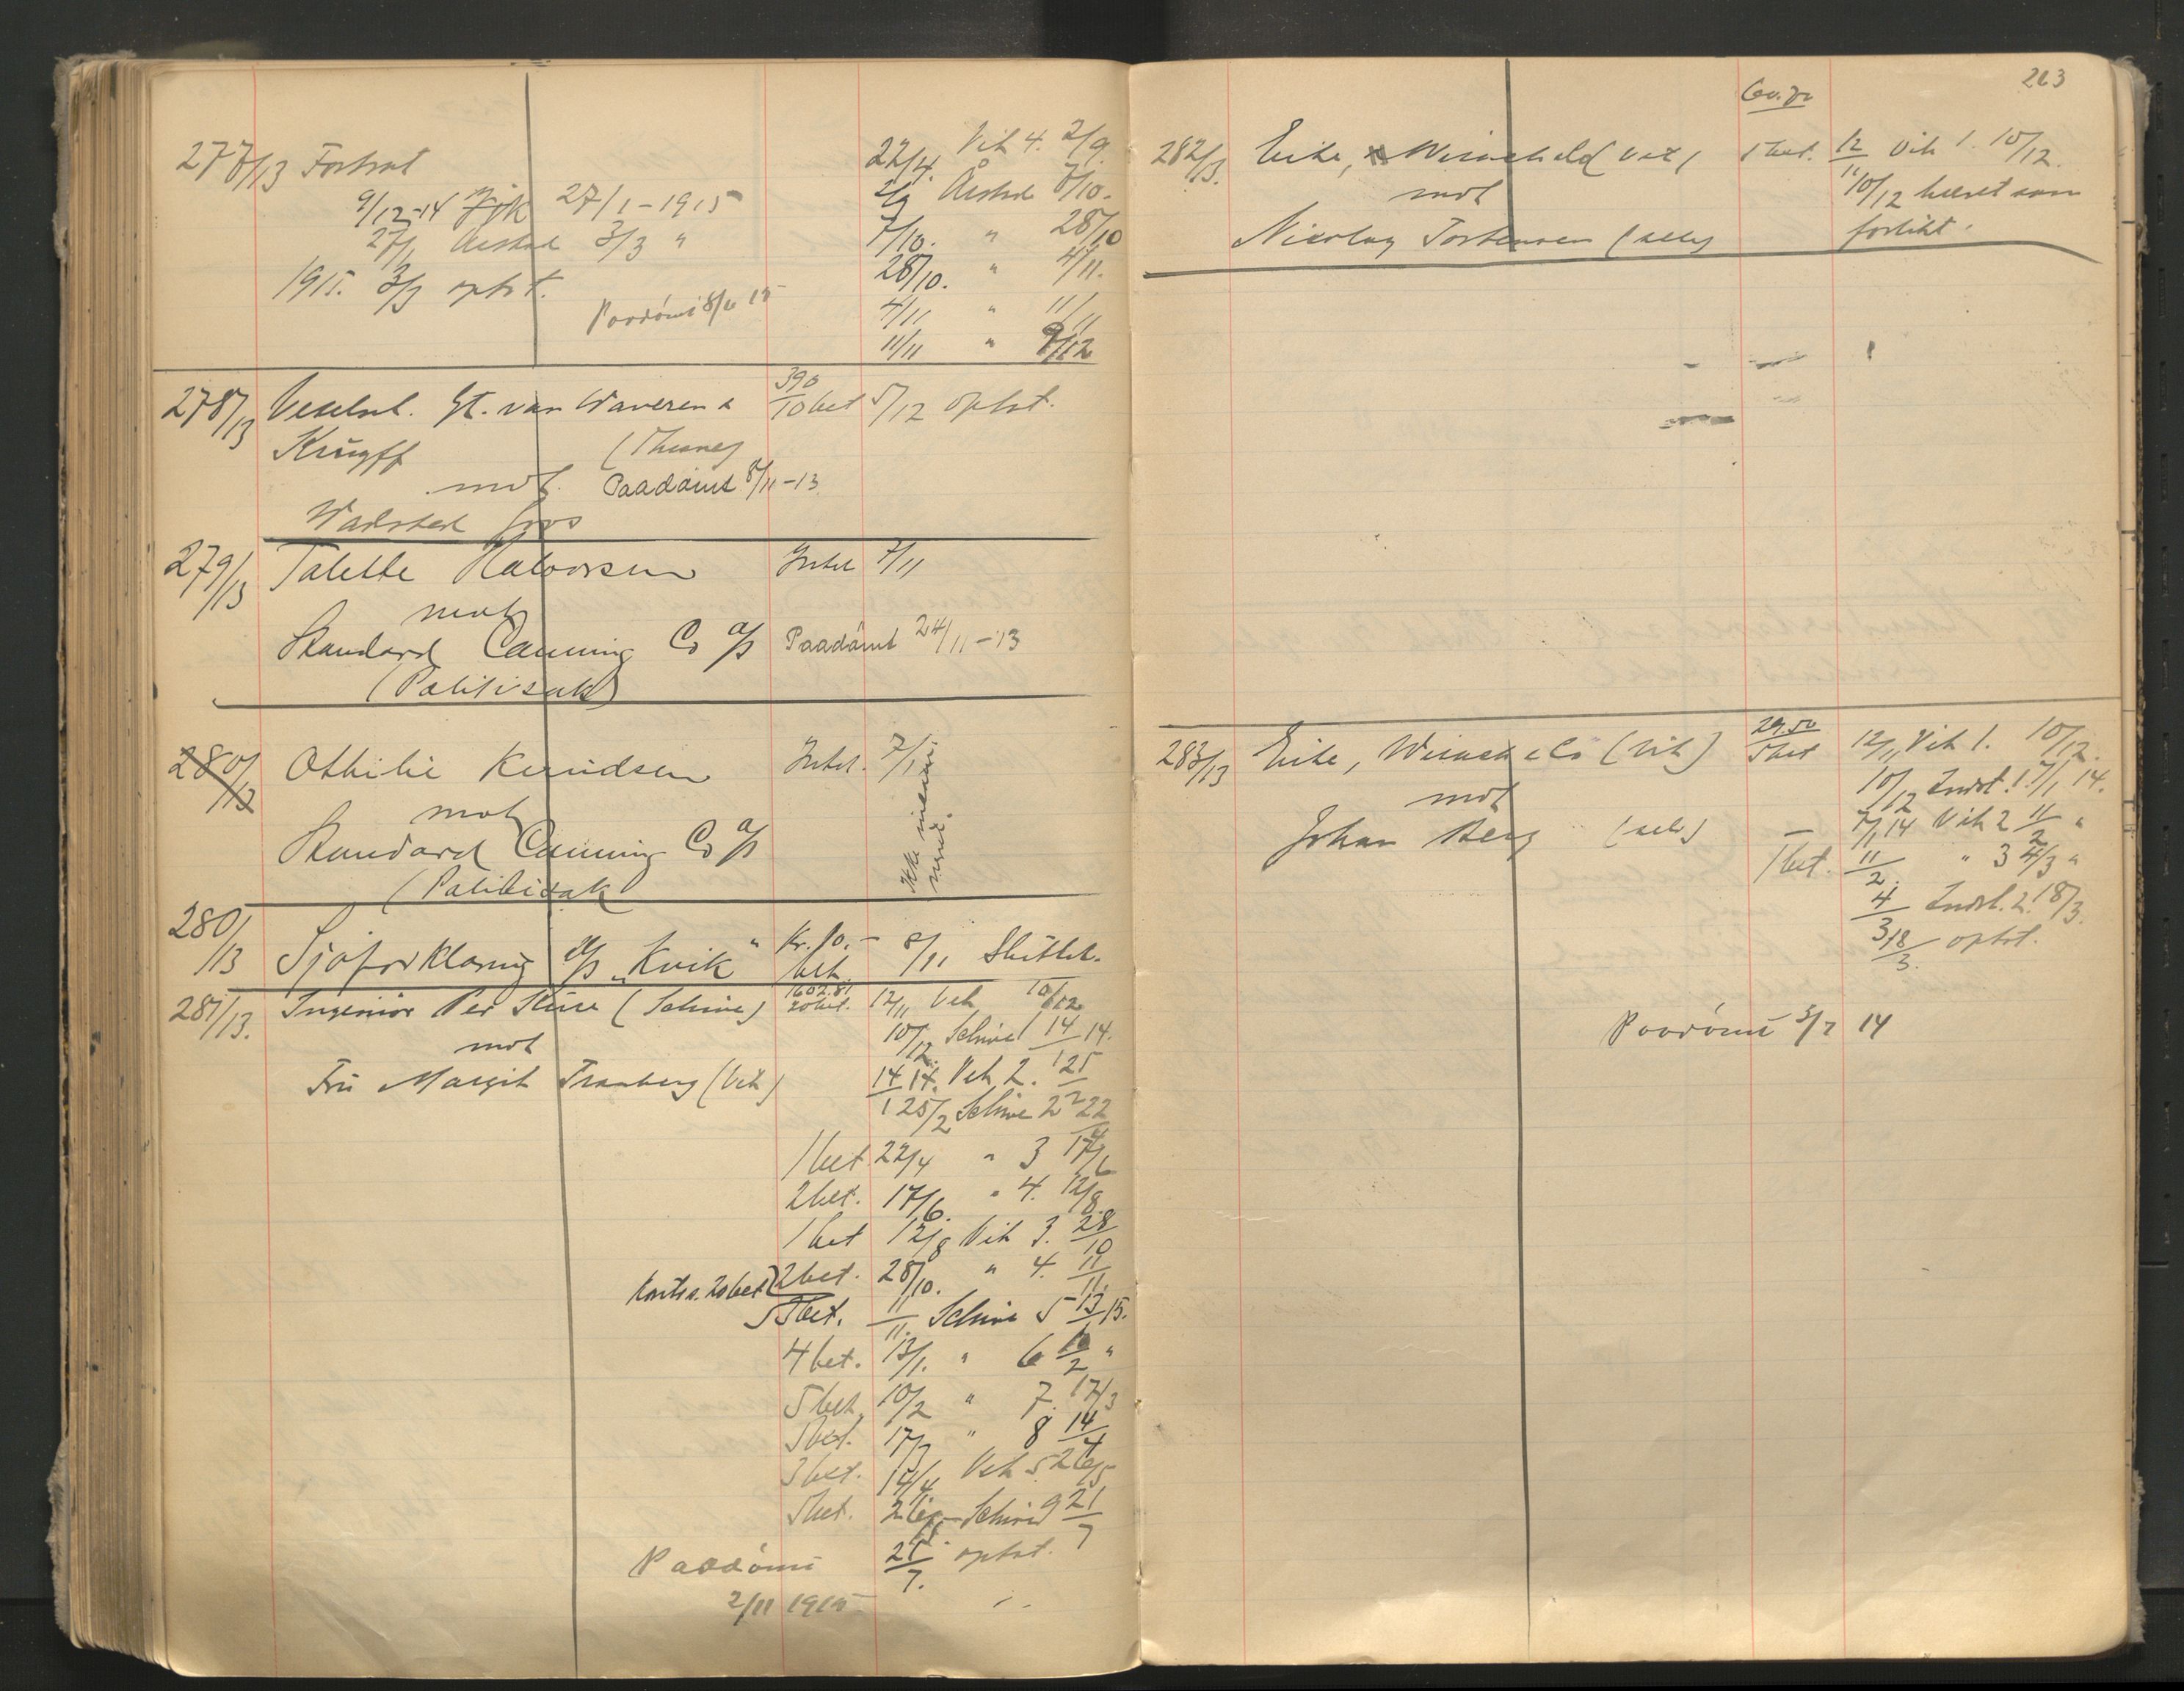 277/13 Fortsat
22/4. Vik 4. 2/9.
9/12-14 27/1 - 1915
2/9 Årstad 7/10.
27/1 Aarstad 3/3 "
7/10. " 28/10
1915. 3/3 optat.
28/10. " 4/11.
Paadömt 8/6 15
4/11 " 11/11
11/11 " 9/12
278/13 Vexels. Gt. van Waveren &
390
10 bet 5/12 optat.
Kruyff
mot. Paadömt 8/11-13.
279/13 Talette Halvorsen 7/11
mot
Standard Canning Co A/S Paadömt 24/11-13
(Politisak)
280/13 Othilie Knudsen 7/11
mot
Standard Canning Co A/S
(Politisak
Ikke
280/13 Sjøforklaring A/S "Kvik" Kr. 10.- bet. 8/11 Sluttet.
281/13. Ingeniör Per (Schive)
1602.81
20 bet. 12/11 Vik 10/12
mot
10/12 Schive 1 14/1 14.
Fru Margit Tranberg (Vik)
14/1 14. Vik 2. 25/2
25/2 Schive 2 22/4
1 bet 22/4 " 3 17/6
2 bet. 17/6. " 4. 12/8.
1 bet 12/8 Vik 3. 28/10
2 bet. 28/10. " 4. 11/11.
Kontra. 20 bet
5 bet. 11/11. Schive 5 13/1 15.
4 bet. 13/1. " 6 10/2 "
5 bet. 10/2 " 7. 17/3
5 bet. 17/3 " 8 14/4
3 bet. 14/4. Vik 5. 26/5
5 bet. 26/5 Schive 9 21/7
Paadömt 21/7. optat.
2/11 1915
263
282/13. 1 bet. 12/11 Vik 1. 10/12.
mot
10/12 hævet som
Nicolay Torstensen (selv)
forlikt.
283/13 (Vik)
29.50
5 bet 12/11 Vik 1. 10/12.
mot
10/12 Indst. 1. 7/1 14.
Johan Berg (selv)
- 7/1 14 Vik 2 11/2 "
1 bet. 11/2. " 3 4/3 "
4/3 Indst. 2. 18/3.
18/3. optat.
Paadömt 3/7 14